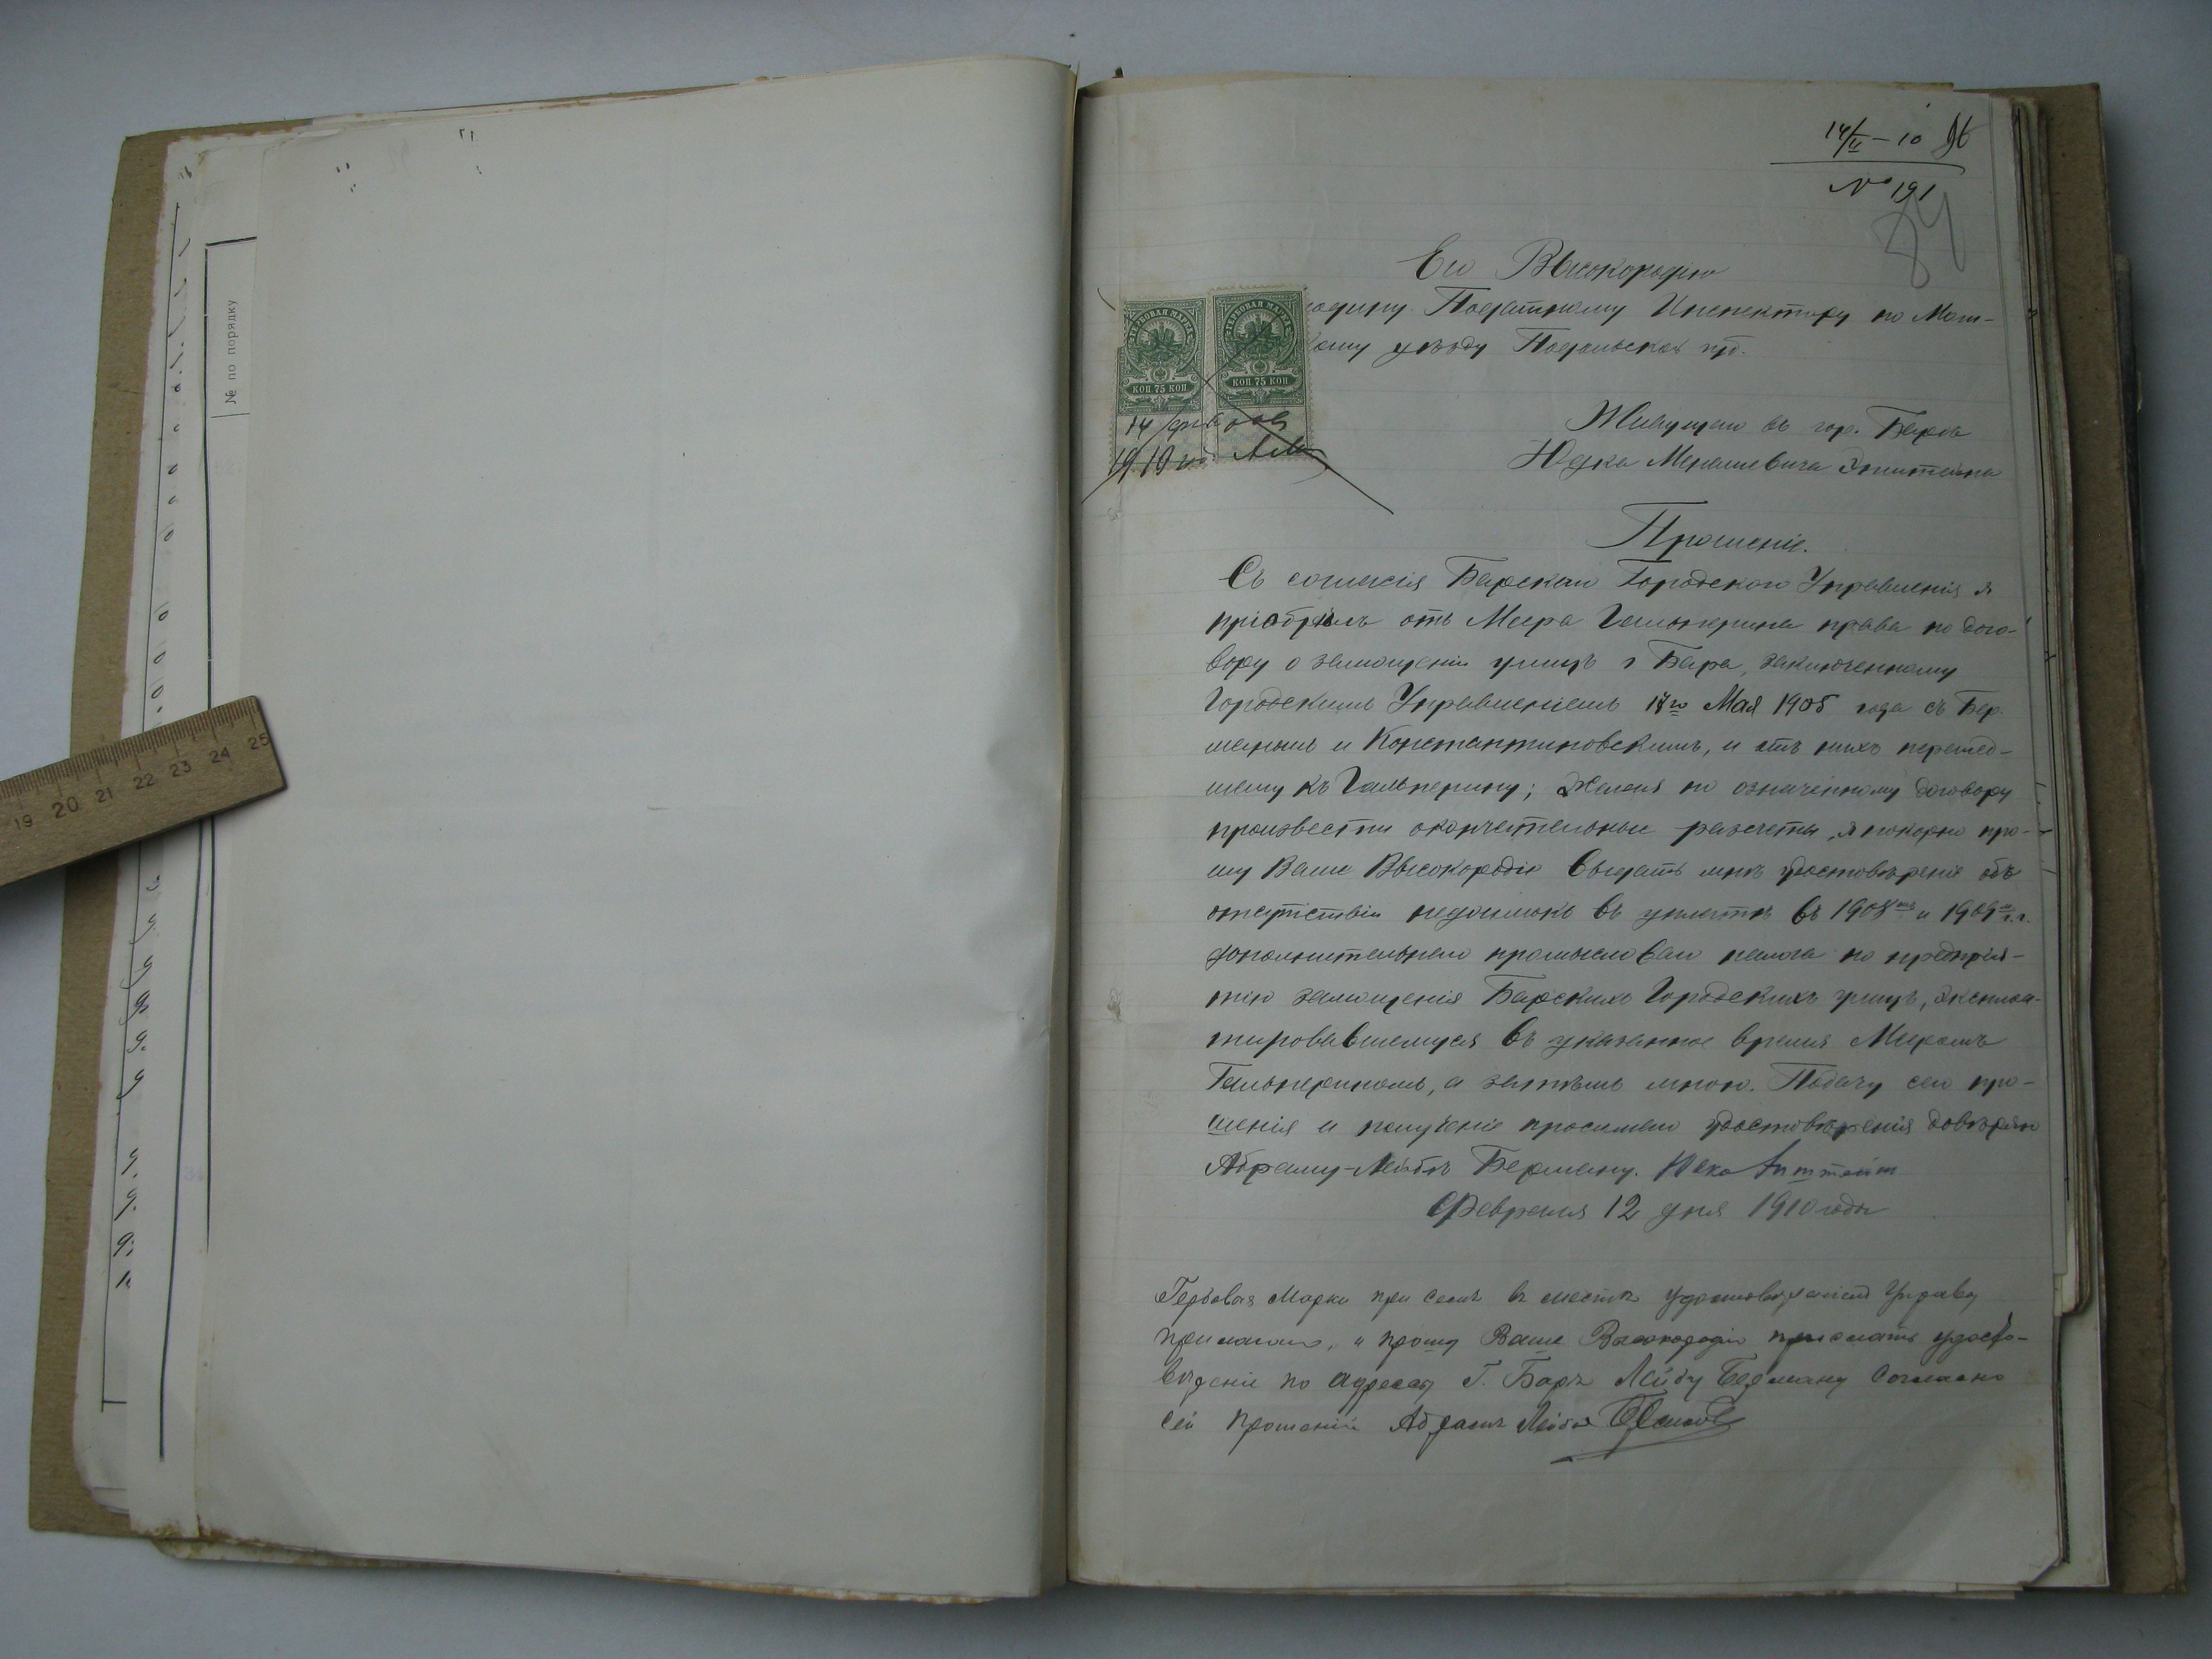 № по порядку
19 20 21 22 23 24 25
14/II – 10
№ 191
84
Его Высокородію
Податному Инспектору по Мог-
уѣзду Подольской губ.
ГЕРБОВАЯ МАРКА
ГЕРБОВАЯ МАРКА
КОП 75 КОП
КОП 75 КОП
14
1910
Живущаго въ гор. Барѣ
Юдка Менашевича Эпштейна
Прошеніе.
Съ согласія Барскаго Городского Управленія я
пріобрѣлъ отъ Меера Гальперина права по дого-
вору о замощеніи улицъ г Бара, заключенному
Городскимъ Управленіемъ Мая 1905 года съ Бер-
маномъ и Константиновскимъ, и отъ нихъ перешед-
шему къ Гальперину; Желая по означенному договору
произвести окончательные разсчеты, я покорно про-
шу Ваше Высокородіе выдать мнѣ удостовѣреніе объ
отсутствіи недоимокъ въ уплатѣ въ 1908мъ и 1909мъ г.г.
дополнительнаго промысловаго налога по предпрія-
тію замощенія Барскихъ Городскихъ улицъ, эксплоа-
тировавшемуся въ указанное время Мееромъ
Гальпериномъ, а затѣмъ мною. Подачу сего про-
шенія и полученіе просимаго удостовѣренія довѣряю
Абраму-Лейбѣ Берману.
Февраля 12 дня 1910 года
Гербовая Марки при семъ въ местѣ
прилагаю, и прошу Ваше Высокородіе прислать удосто-
вереніе по адресу Г. Баръ Лейбу Берману Согласно
сей прошеній Абрамъ Лейба Берманъ